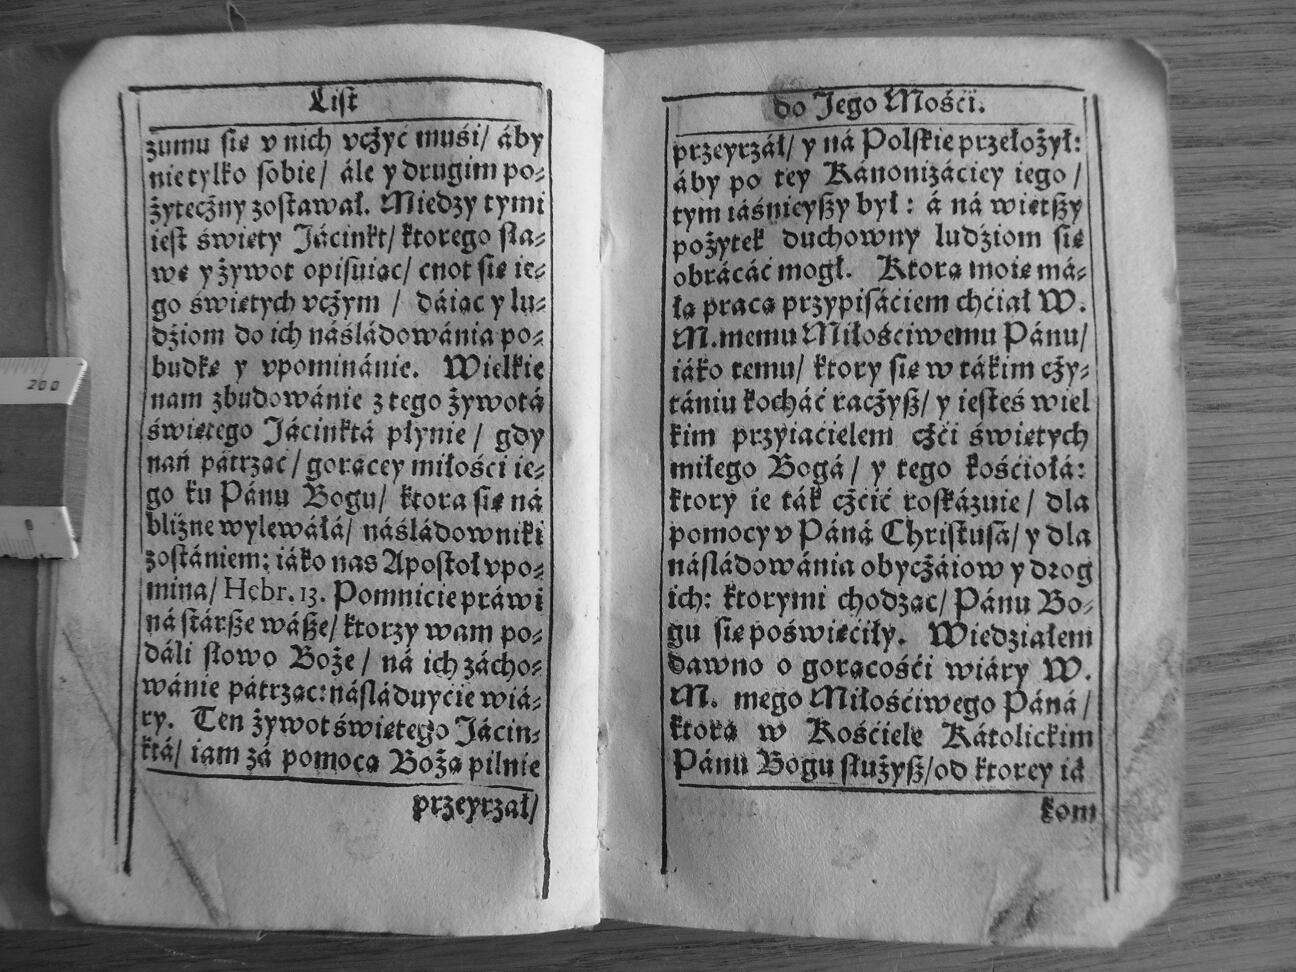 List
zumu się v nich vcżyć muśi/ áby
nie tylko sobie/ ále y drugim po⸗
żytecżny zostawał. Miedzy tymi
iest święty Jácinkt/ ktorego sła⸗
wę y żywot opisuiąc/ cnot się ie⸗
go świętych vcżym / dáiąc y lu⸗
dźiom do ich náśládowánia po⸗
budkę y vpominánie. Wielkie
nam zbudowánie z tego żywotá
świętego Jácinktá płynie / gdy
nań pátrząc/ gorącey miłośći ie⸗
go ku Pánu Bogu/ ktora się ná
bliźne wylewáłá/ náśládowniki
zostániem: iáko nas Apostoł vpo⸗
mina/ Hebr. 13. Pomnicie práwi
ná stárße wáße/ ktorzy wam po⸗
dáli słowo Boże/ ná ich zácho⸗
wánie pátrząc: násláduyćie wiá⸗
ry. Ten żywot świętego Jácin⸗
ktá/ iam zá pomocą Bożą pilnie
przeyrzał/
do Jego Mośći.
przeyrzáł/ y ná Polskie przełożył:
áby po tey Kánonizáciey iego /
tym iáśnieyßy był : á ná więtßy
pożytek duchowny ludźiom się
obrácáć mogł. Ktorą moię má⸗
łą pracą przypisáćiem chćiał W.
M. memu Miłośćiwemu Pánu/
iáko temu/ ktory się w tákim cży⸗
tániu kocháć racżyß/ y iesteś wiel
kim przyiacielem cżći świętych
miłego Bogá/ y tego kośćiołá:
ktory ie ták cżćić roskázuie/ dla
pomocy v Páná Christusá/ y dla
násládowánia obycżáiow y drog
ich: ktorymi chodząc/ Pánu Bo⸗
gu się poświęćiły. Wiedziałem
dawno o gorącośći wiáry W.
M. mego Miłośćiwego Páná/
ktorą w Kośćiele Kátolickim
Pánu Bogu służyß/ od ktorey iá
kom